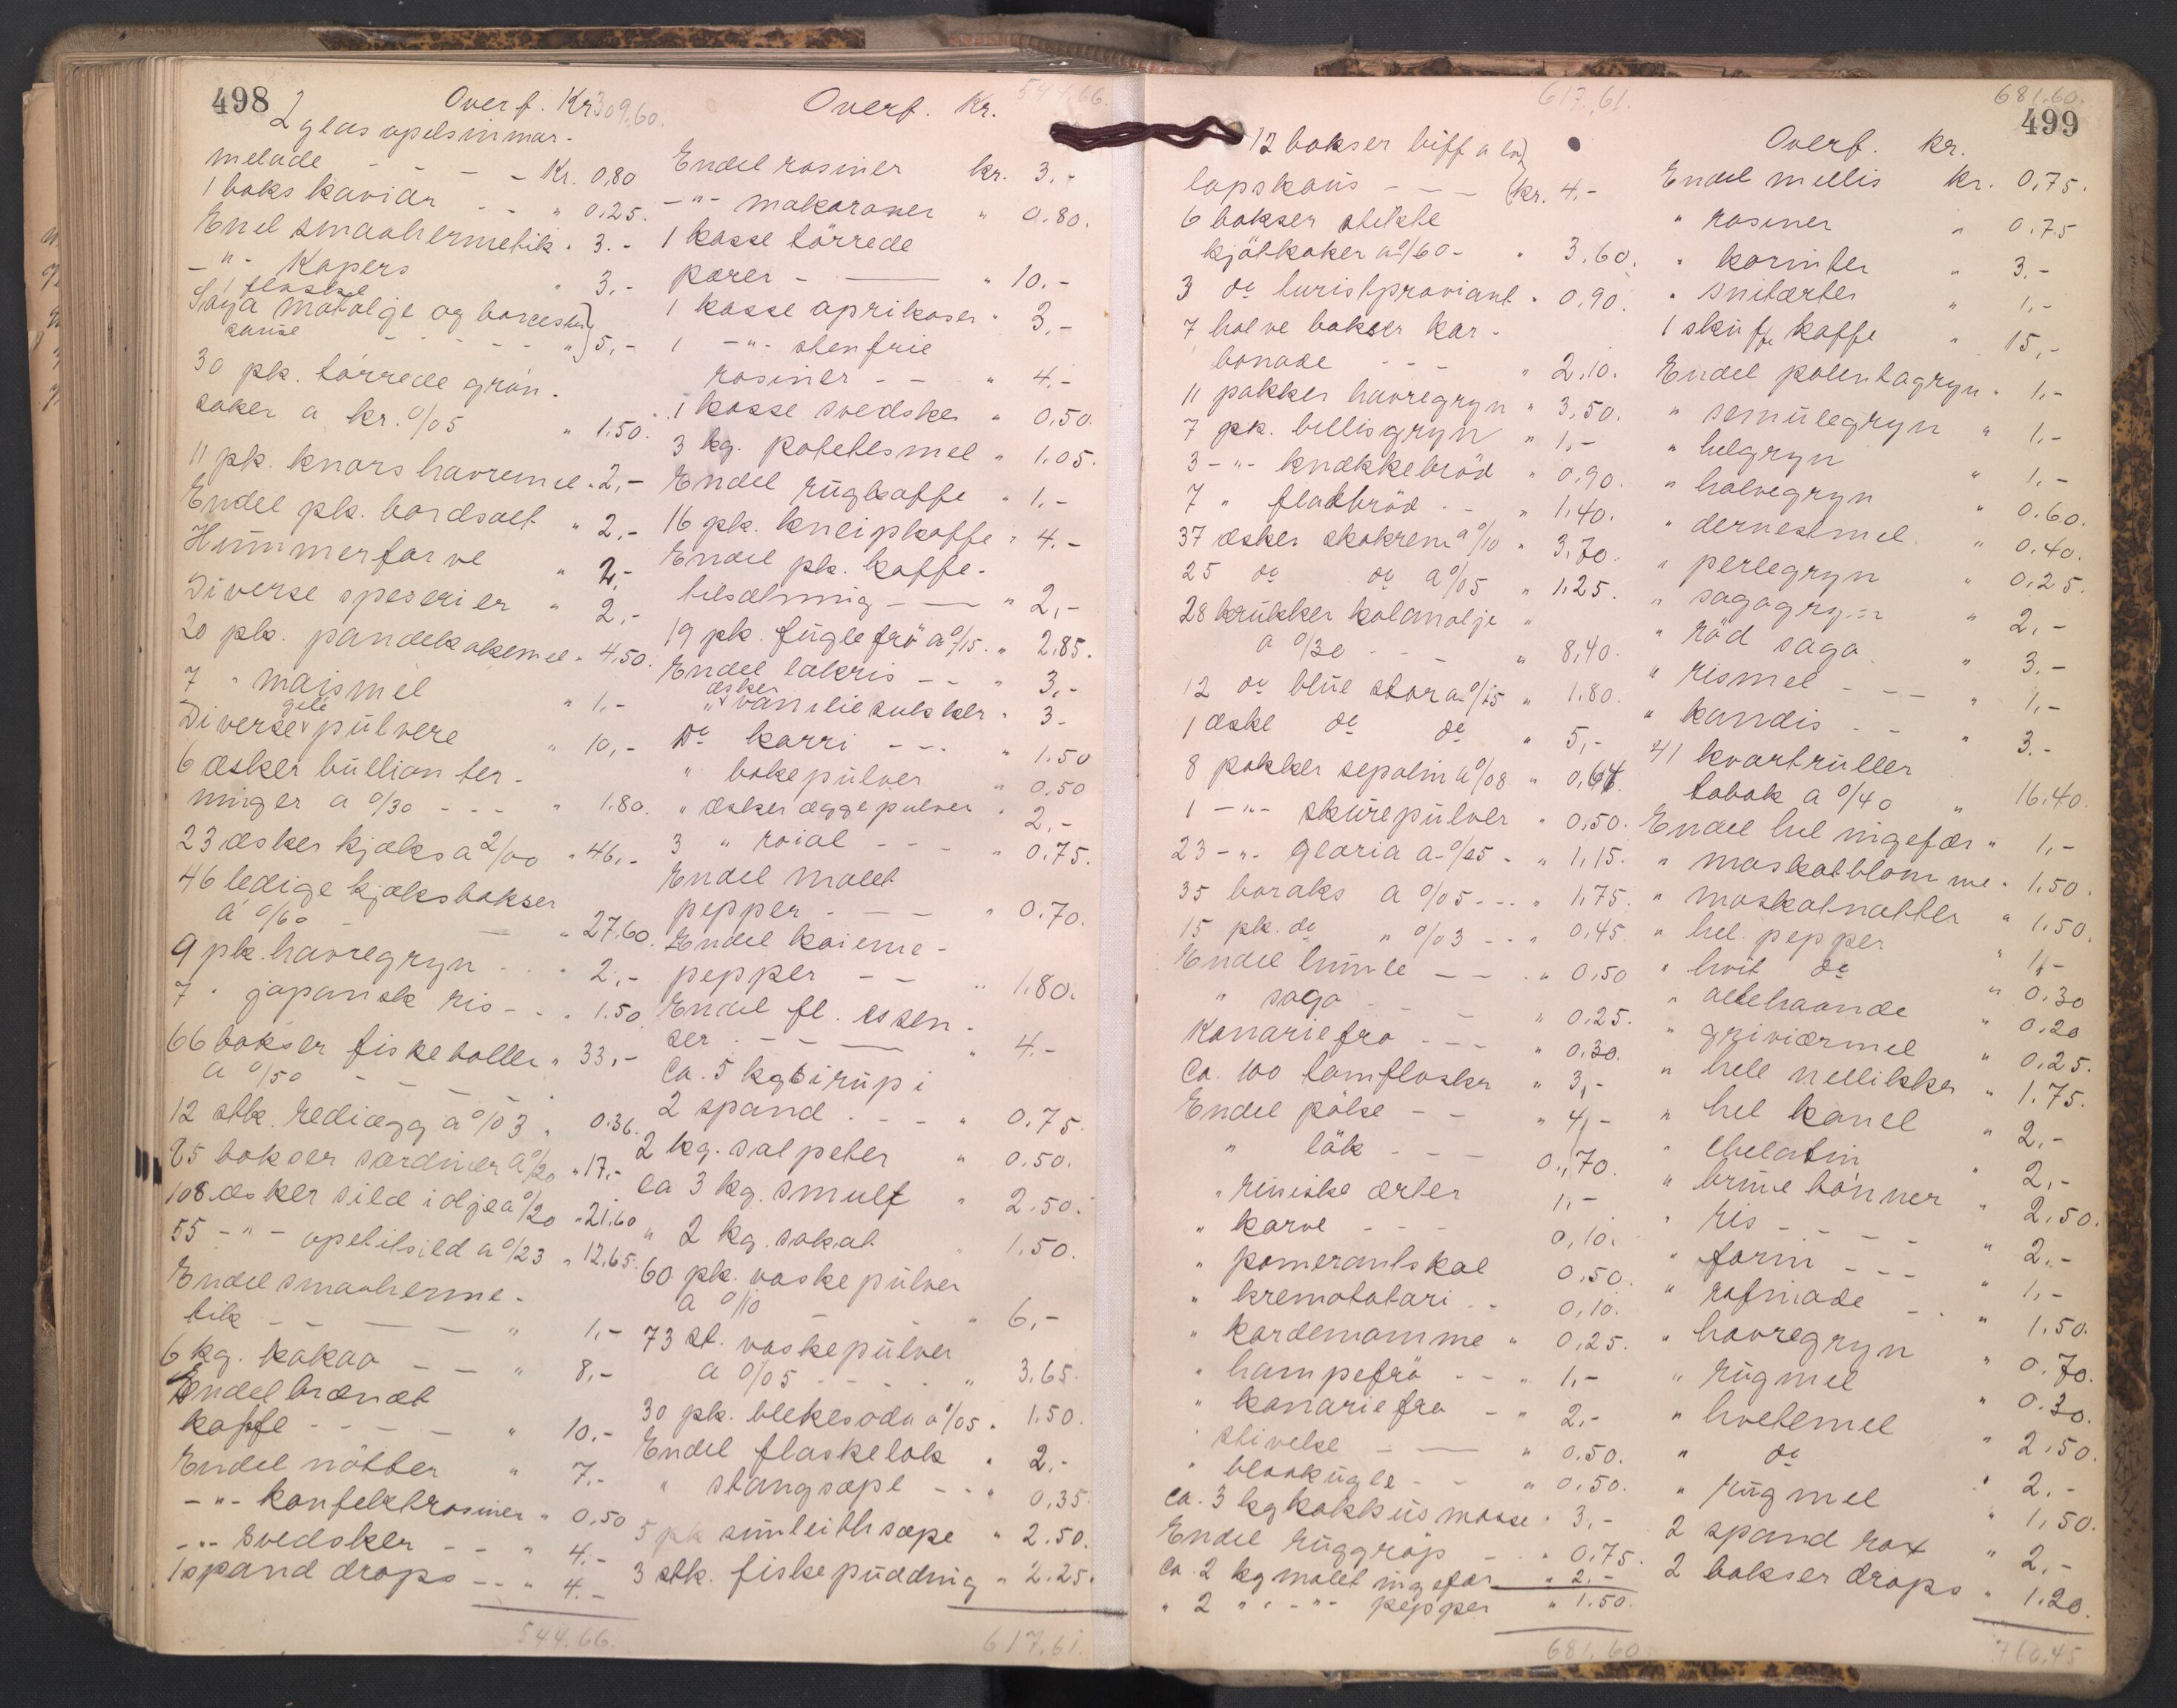 498
Overf. Kr 309.60.
2 glas apelsinmar-
melade - - - - Kr. 0,80
1 boks kaviar - - " 0.25.
Enel smaahermetik. 3.-
-"- Kapers " 3.-
1 flaske
Soya matolje og
sause - - - - - " 5,-
30 pk. törrede grön-
saker a kr. 0/05 " 1.50.
11 pk. knors havremel " 2,-
Endel pk. bordsalt " 2,-
Hummerfarve " 2,-
Diverse speserier " 2,-
20 pk. pandekakemel " 4.50.
7 " maismel " 1,-
gele
Diverse pulvere " 10,-
6 æsker bullion ter-
ninger a 0/30 - - - " 1.80.
23 æsker kjæks a 2/00 " 46,-
46 ledige kjæksbokser
a 0/60 - — " 27.60.
9 pk. havregryn - - " 2,-
7 " japansk ris - - " 1.50
66 bokser fiskeboller " 33,-
a 0/50 - - -
12 stk. rediægg a 0/03 " 0.36.
85 bokser sardiner a 0/20 " 17,-
108 æsker sild i olje a 0/20 " 21.60
55 -"- apetitsild a 0/23 " 12.65.
Endel smaaherme-
tik - - — — " 1,-
6 kg. kakao - - " 8,-
Endel brændt
kaffe - - - - " 10.-
Endel nötter " 7.-
-"- konfektrosiner " 0.50
-"- Svedsker - - " 4.-
1 spand drops - - " 4.-
544.66.
Overf. Kr. 544.66.
Endel rosiner kr. 3.-
-"- makaroner " 0.80.
1 kasse törrede
pærer - — " 10.-
1 kasse aprikoser " 3.-
1 -"- stenfrie
rosiner - - " 4.-
1 kasse svedsker " 0.50.
3 kg. potetesmel " 1.05.
Endel rugkaffe " 1.-
16 pk. kneipkaffe " 4.-
Endel pk. kaffe-
tilsætning - — " 2,-
19 pk. fuglefrö a 0/15. " 2.85.
Endel lakris - - " 3,-
æsker
" vaniliesukker " 3-
Do karri - - - " 1.50
" bakepulver " 0.50
" æsker æggepulver " 2.-
3 " roial - - - " 0.75.
Endel malet
pepper - - - " 0.70.
Endel kaiene-
pepper - - " 1.80.
Endel fl. essen-
ser - - — " 4.-
Ca. 5 kg sirup i
2 spand - - - " 0.75.
2 kg. salpeter " 0.50.
ca 3 kg. smult " 2.50.
" 2 kg. sukat " 1.50.
60 pk. vaskepulver
a 0/10 - " 6,-
73 st. vaskepulver
a 0/05 - - - - " 3.65.
30 pk. blekesoda a 0/05 " 1.50.
Endel flaskelak " 2.-
" stangsæpe - - " 0.35.
5 pk sunleith sæpe " 2.50.
3 stk. fiskepudding " 2.25.
617.61.
617.61.
12 bokser biff a la
lapskaus - - - kr. 4.-
6 bokser stekte
kjötkaker a 0/60 - " 3.60.
3 do turistproviant " 0.90.
7 halve bokser kar-
bonade - - - " 2.10.
11 pakker havregryn " 3.50.
7 pk. billisgryn " 1,-
3 -"- knækkebröd " 0.90.
7 " flatbröd - - " 1.40.
37 æsker skokrem a 0/10 " 3.70.
25 do do a 0/05 " 1.25.
28 krukker kolanolje "
a 0/30 - - - " 8.40.
12 do blue star a 0/15 " 1.80.
1 æske do do " 5,-
8 pakker sepolin a 0/08 " 0,64
1 -"- skurepulver " 0.50.
23 -"- gloria a 0/05 - " 1.15.
35 boraks a 0/05 - - - " 1.75.
15 pk. do " 0/03 - - " 0.45.
Endel humle - - - " 0.50
" sago - - " 0.25.
Kanariefrø - - - " 0.30.
Ca. 100 tomflasker " 3,-
Endel pölse - - " 4,-
" lök - - - 0.,70.
" reniske ærter 1,-
" karve - - - 0.10.
" pomerantskal 0.50.
" kremotatari - - 0.10.
" kardemamme " 0.25.
" hampefrö - - " 1.-
" kanariefrø - " 2.-
" Stivelse - — " 0.50.
" blaakugle - - " 0.50.
ca. 3 kg kokkusmasse " 3.-
Endel ruggröp - " 0.75.
ca. 2 kg malet ingefær " 2.-
" 2 " " -"- pepper " 1.50.
681.60
681.60.
499
Overf. kr.
Endel mellis kr. 0.75.
" rosiner " 0.75
" korinter " 3.-
" snitærter " 1,-
1 skuffe kaffe " 15,-
Endel polentagryn " 1.-
" semulegryn " 1.-
" helgryn " 1.-
" halvegryn " 0.60.
" dernestmel " 0.40.
" perlegryn " 0.25.
" sagogryn " 2,-
" röd sago " 3.-
" rismel - - - " 1,-
" kandis - - " 3.-
41 kvartruller
tobak a 0/40 " 16.40.
Endel hel ingefær " 1.-
" moskatblomme " 1.50.
" moskatnøtter " 1.50.
" hel. pepper " 1,-
" hvit do " 0.30
" allehaande " 0.20
" " 0.25.
" hell nellikker " 1.75.
" hel kanel " 2,-
" Chelatin " 2,-
" brune bönner " 2.50.
" ris - - - - " 2.-
" farin - - - " 1.-
" rafinade - - " 1.50.
" havregryn " 0.70.
" rugmel " 0.30.
" hvetemel " 2.50.
" do " 2.-
" rugmel " 1.50.
2 spand rox " 2.-
2 bokser drops " 1.20.
766.45